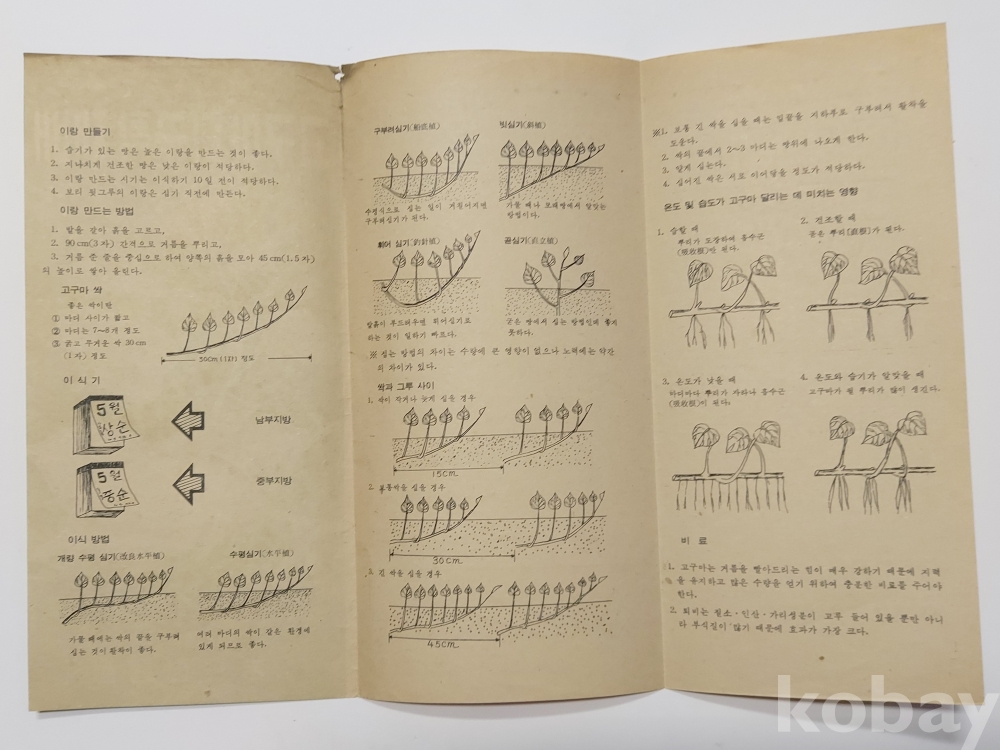 이랑 만들기
1. 습기가 있는 땅은 높은 이랑을 만드는 것이 좋다.
2. 지나치게 건조한 땅은 낮은 이랑이 적당하다.
3. 이랑 만드는 시기는 이식하기 10일 전이 적당하다.
4. 보리 뒷그루의 이랑은 심기 직전에 만든다.
이랑 만드는 방법
1. 밭을 갈아 흙을 고르고,
2. 90cm(3자) 간격으로 거름을 뿌리고,
3. 거름 준 줄을 중심으로 하여 양쪽의 흙을 모아 45cm(1.5자)
의 높이로 쌓아 올린다.
고구마 싹
좋은 싹이란
① 마디 사이가 짧고
② 마디는 7~8개 정도
③ 굵고 무거운 싹 30cm
(1자) 정도
30cm(1자) 정도
이식기
5월
상순
남부지방
5월
중순
중부지방
이식 방법
개량 수평 심기(改良水平植)
수평심기(水平植)
가물 때에는 싹의 끝을 구부려
심는 것이 활착이 좋다.
여러 마디의 싹이 같은 환경에
있게 되므로 좋다.
구부려심기(船底植)
빗심기(斜植)
수평식으로 심는 일이 거칠어지면
구부려심기가 된다.
가물 때나 모래땅에서 알맞는
방법이다.
휘어 심기(釣針植)
곧심기(直立植)
밭흙이 부드러우면 휘어심기로
하는 것이 일하기 빠르다.
굳은 땅에서 심는 방법인데 좋지
못하다.
※ 심는 방법의 차이는 수량에 큰 영향이 없으나 노력에는 약간
의 차이가 있다.
싹과 그루 사이
1. 싹이 작거나 늦게 심을 경우
15cm
2. 보통싹을 심을 경우
30cm
3. 긴 싹을 심을 경우
45cm
※1. 보통 긴 싹을 심을 때는 밑끝을 지하부로 구부려서 활착을
도운다.
2. 싹의 끝에서 2~3 마디는 땅위에 나오게 한다.
3. 얕게 심는다.
4. 심어진 싹은 서로 이어닿을 정도가 적당하다.
온도 및 습도가 고구마 달리는 데 미치는 영향
1. 습할 때
뿌리가 도장하여 흡수근
(吸收根)이 된다.
2. 건조할 때
굳은 뿌리[直根]가 된다.
3. 온도가 낮을 때
마디마다 뿌리가 자라나 흡수근
(吸收根)이 된다.
4. 온도와 습기가 알맞을 때
고구마가 될 뿌리가 많이 생긴다.
비 료
1. 고구마는 거름을 빨아드리는 힘이 매우 강하기 때문에 지력
을 유지하고 많은 수량을 얻기 위하여 충분한 비료를 주어야
한다.
2. 퇴비는 질소·인산·가리성분이 고루 들어 있을 뿐만 아니
라 부식질이 많기 때문에 효과가 가장 크다.
kobay